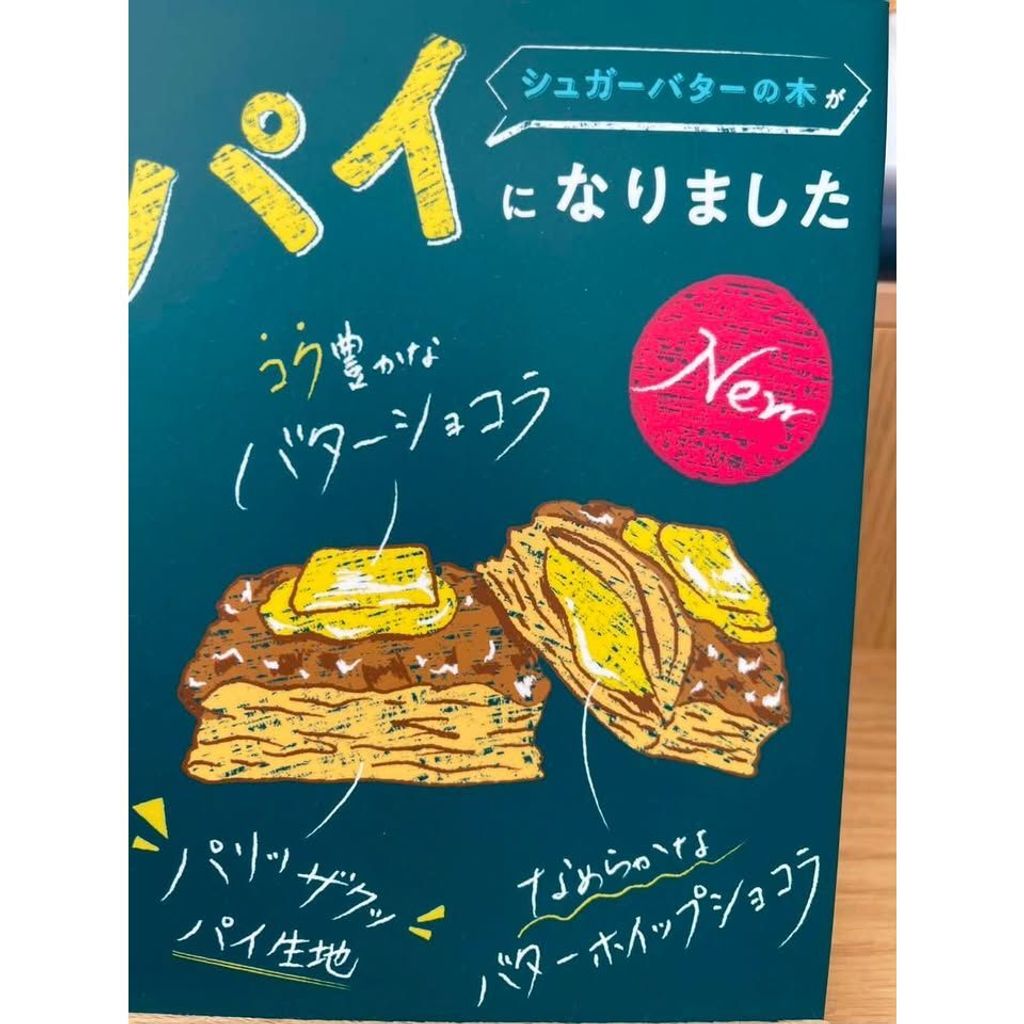 シュガーバターの木が
パイ
になりました
New
コク豊かな
バターショコラ
パリッザクッ
パイ生地
なめらかな
バターホイップショコラ